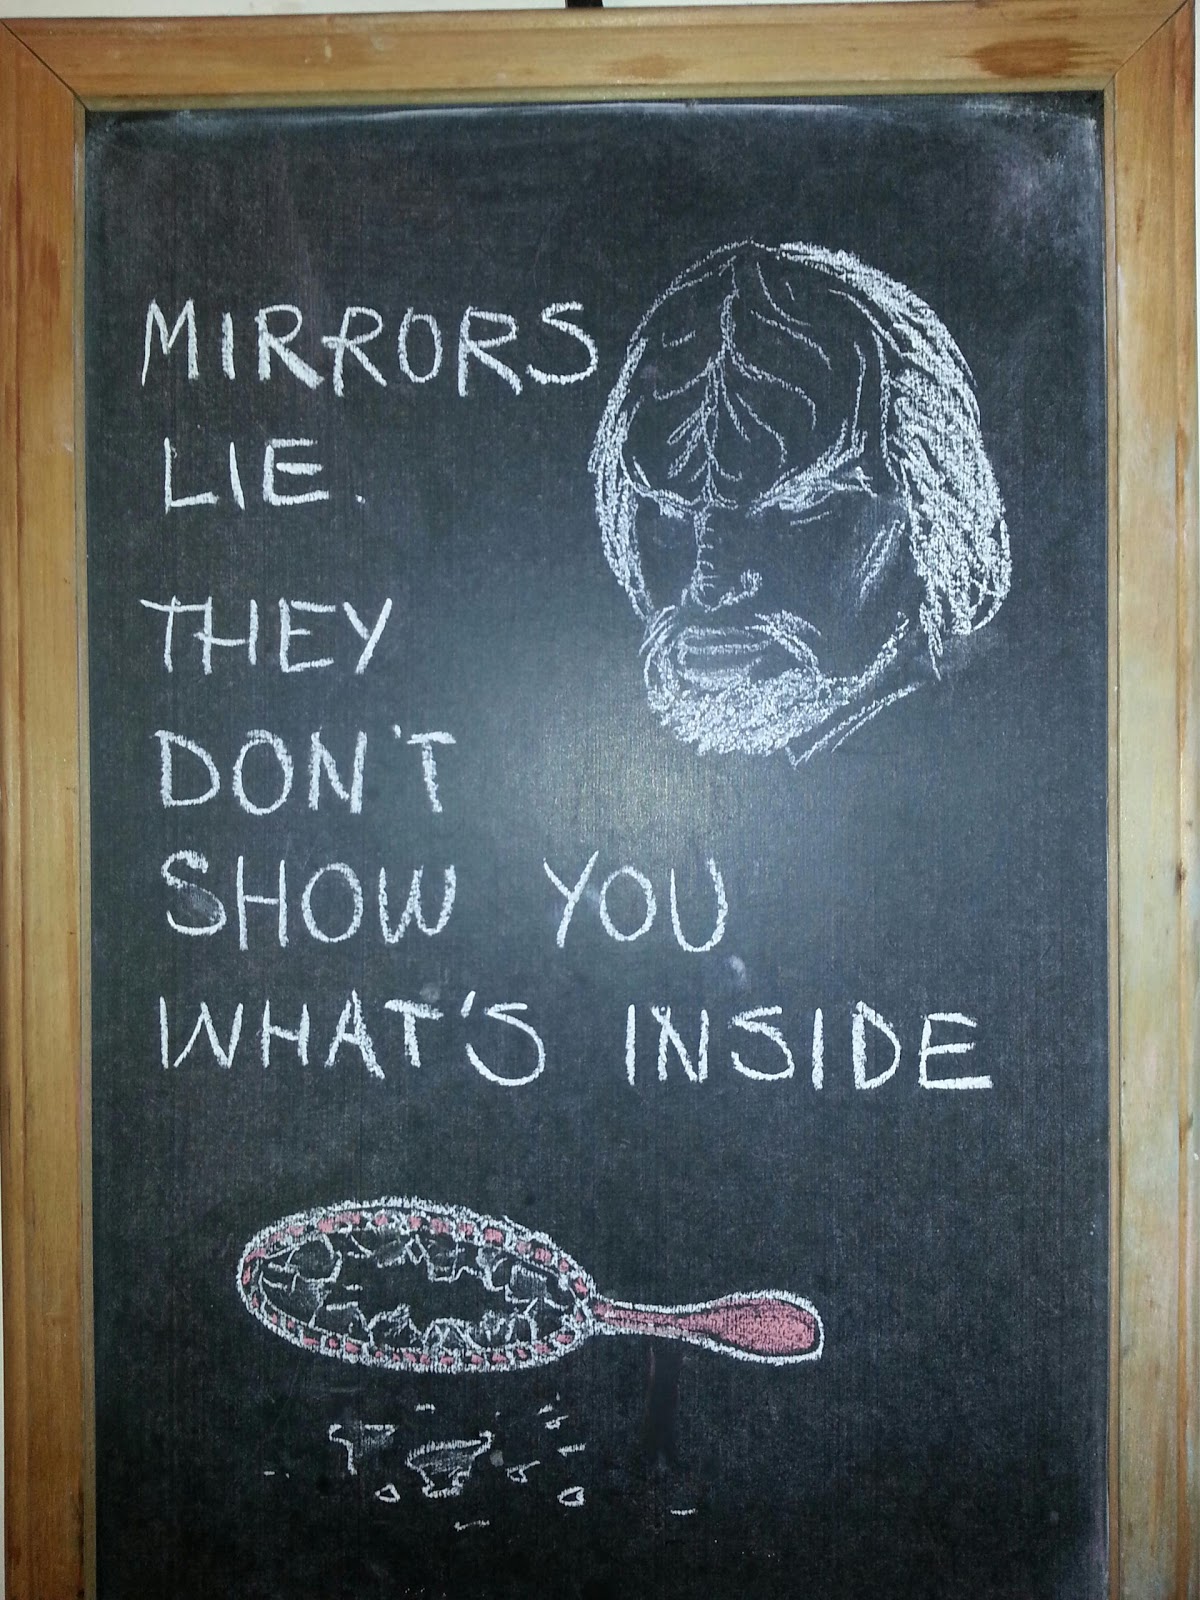 MIRRORS
LIE.
THEY
DON'T
SHOW YOU
WHAT'S INSIDE